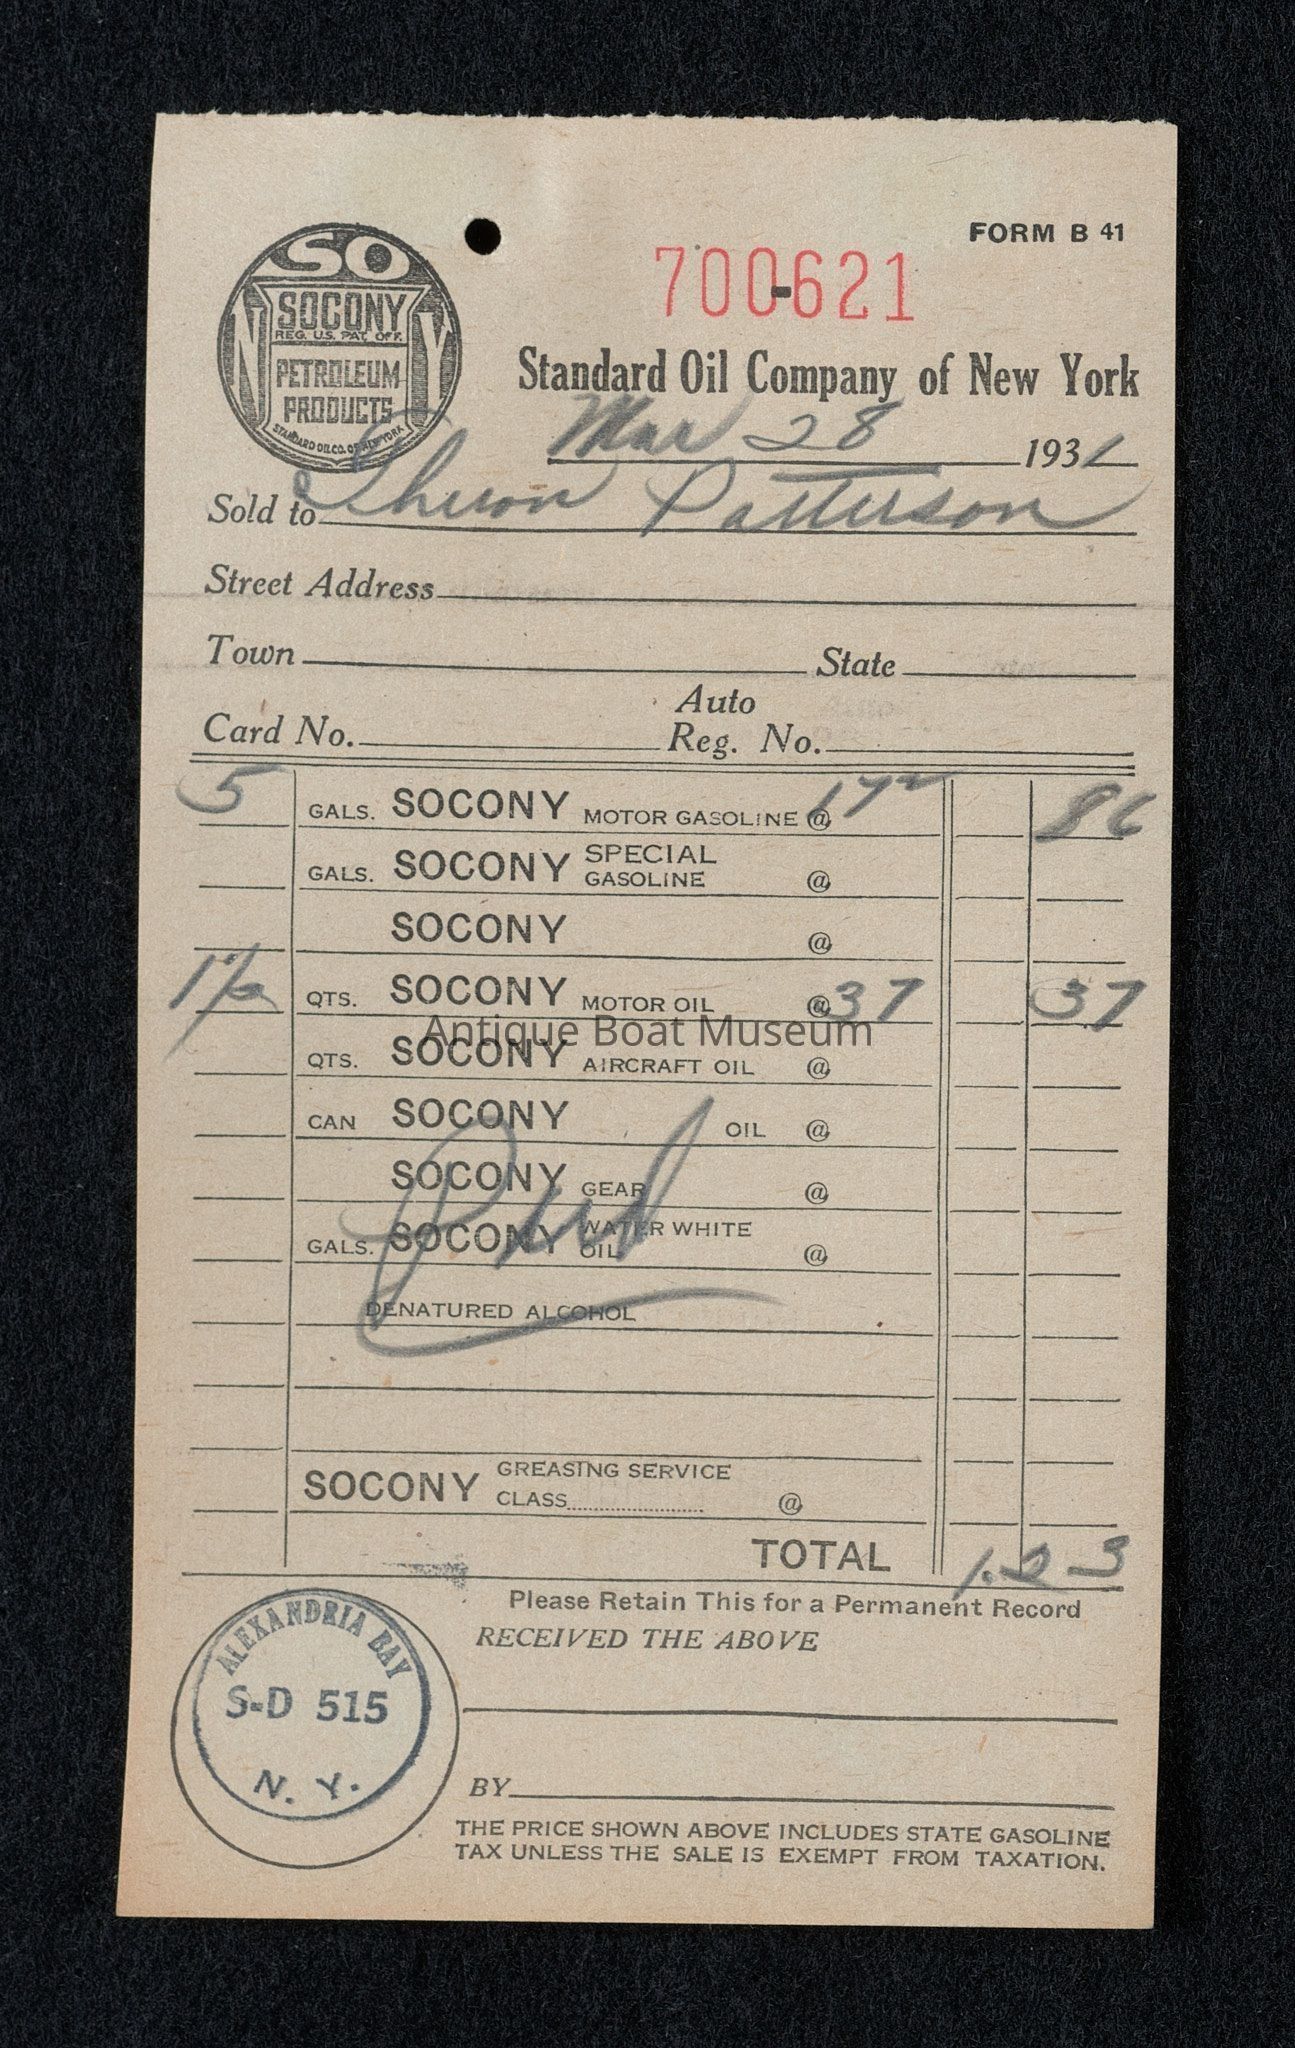 FORM B 41
SO
SOCONY
REG. U.S. PAT. OFF.
N Y
PETROLEUM
PRODUCTS
STANDARD OIL CO. OF NEW YORK
700-621
Standard Oil Company of New York
Mar 28 1931
Sold to Theron Patterson
Street Address
Town State
Card No. Auto Reg. No.
5 GALS. SOCONY MOTOR GASOLINE @ 17 2 86
GALS. SOCONY SPECIAL GASOLINE @
SOCONY @
1 1/2 QTS. SOCONY MOTOR OIL @ 37 37
Antique Boat Museum
QTS. SOCONY AIRCRAFT OIL @
CAN SOCONY OIL @
SOCONY GEAR @
GALS. SOCONY WATER WHITE OIL @
Paid
DENATURED ALCOHOL
SOCONY GREASING SERVICE CLASS @
TOTAL 1.23
Please Retain This for a Permanent Record
RECEIVED THE ABOVE
ALEXANDRIA BAY
S-D 515
N. Y.
BY
THE PRICE SHOWN ABOVE INCLUDES STATE GASOLINE
TAX UNLESS THE SALE IS EXEMPT FROM TAXATION.